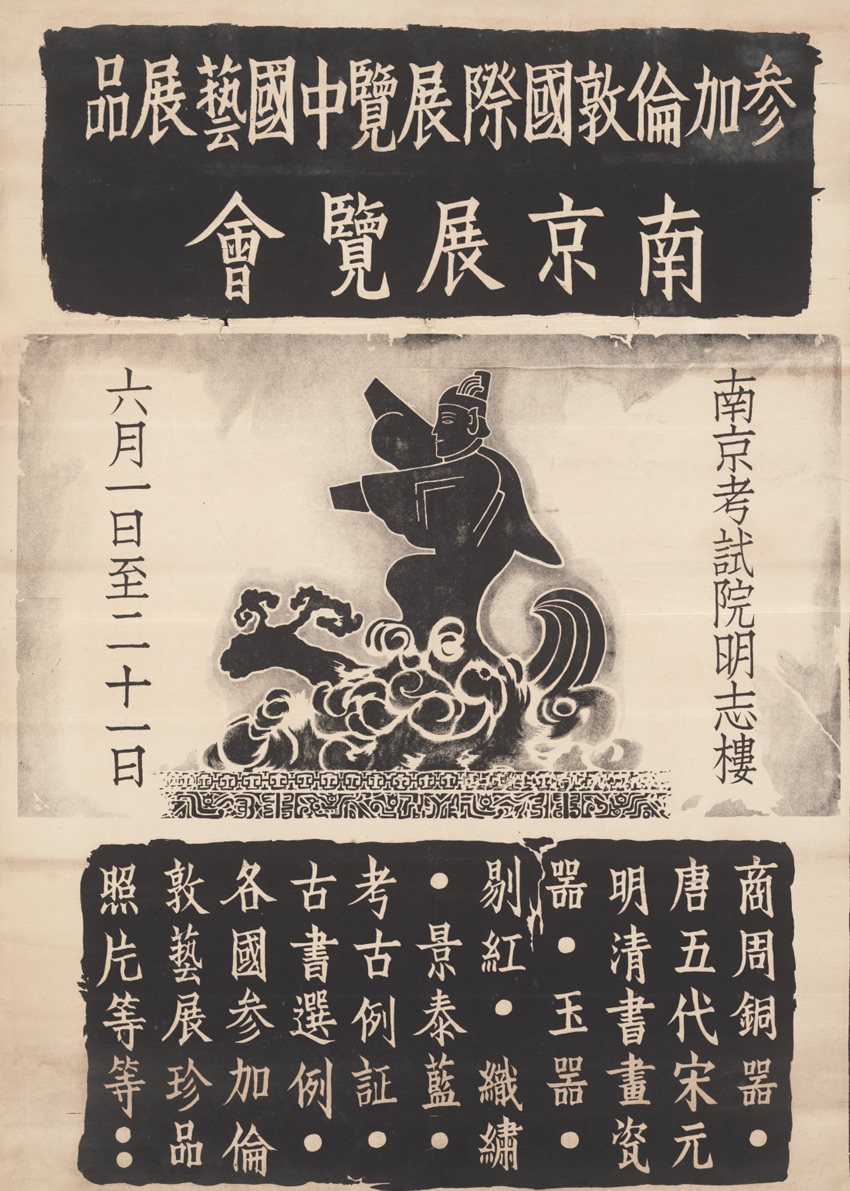 参加倫敦國際展覽中國藝展品
南京展覽會
南京考試院明志樓
六月一日至二十一日
商周銅器●
唐五代宋元
明清書畫瓷
器●玉器●
剔紅●織繡
●景泰藍●
考古例証●
古書選例●
各國参加倫
敦藝展珍品
照片等等●●